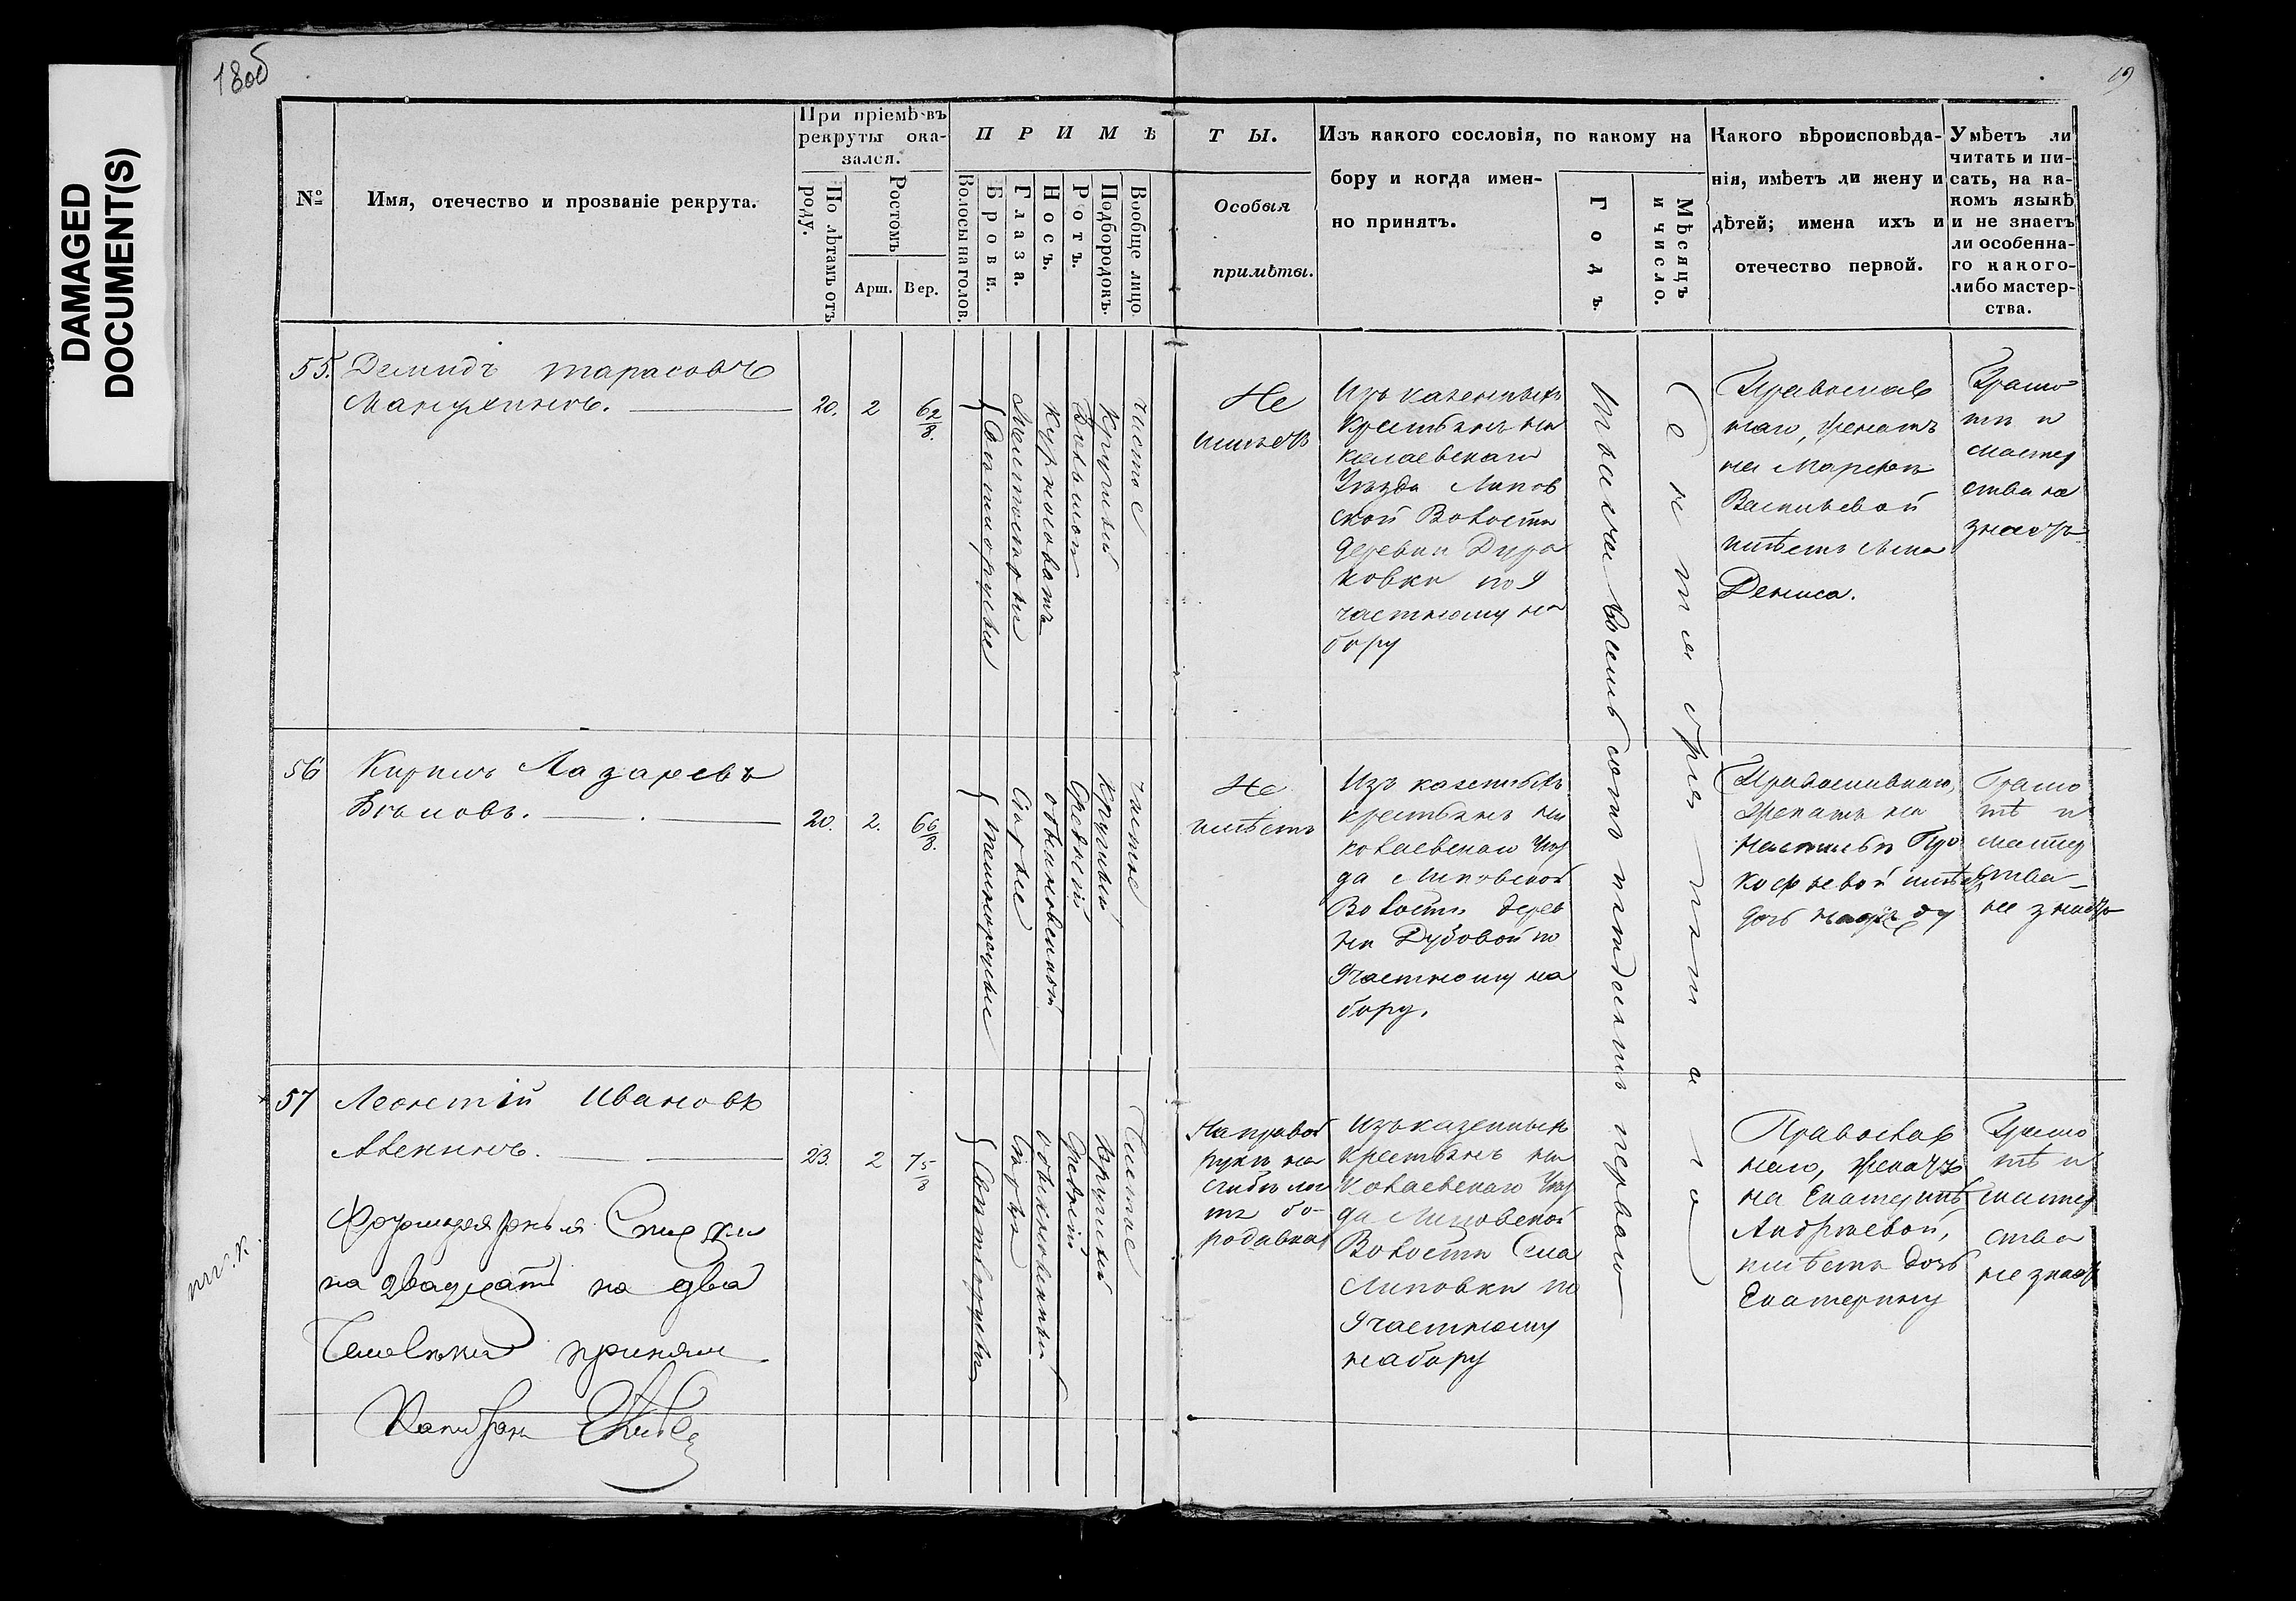 DAMAGED
DOCUMENT(S)
18об
19
№
Имя, отечество и прозваніе рекрута.
При пріемѣ въ
рекруты ока-
зался.
По лѣтамъ отъ
роду.
Ростомъ
Арш.
Вер.
П Р И М Ѣ
Волосы на голов.
Брови.
Глаза.
Носъ.
Ротъ.
Подбородокъ.
Вообще лицо.
Т Ы.
Особыя
примѣты.
Изъ какого сословія, по какому на
бору и когда имен-
но принятъ.
Годъ.
Мѣсяцъ
и число.
Какого вѣроисповѣда-
нія, имѣетъ ли жену и
дѣтей; имена ихъ и
отечество первой.
Умѣетъ ли
читать и пи-
сать, на ка-
комъ языкѣ
и не знаетъ
ли особенна-
го какого-
либо мастер-
ства.
55. Демидъ Тарасовъ
20. 2 6 2/8.
Свѣтлорусые
Курносоватъ
Круглый
чистое
Не
имѣетъ
Изъ казенныхъ
крестьянъ Ни
колаевскаго
Уѣзда Липов
ской Волости
деревни Дура
ковки по 9
частному на
бору
Тысяча восемьсотъ пятдесятъ перваго
Сентября
числа
Православ
наго, женатъ
на Марѳѣ
Васильевой
имѣетъ сына
Дениса.
Грамо
тѣ и
мастер
ства не
знаетъ
56 Кирилъ Лазаревъ
20. 2. 6 6/8.
темнорусые
Сѣрые
обыкновенной
Средній
Круглый
чистое
Не
имѣетъ
Изъ казенныхъ
крестьянъ Ни
колаевскаго Уѣз
да Липовской
Волости дерев
ни Дубовой по
9 частному на
бору.
Православнаго,
женатъ на
Настасьи Про
кофьевой имѣетъ
дочь
Грамо
тѣ и
мастер
ства
не знаетъ
57 Леонтій Ивановъ
Аленинъ.
23. 2 7 5/8
Свѣтлорусые
Сѣрые
обыкновенный
Средній
Круглый
Чистое
На правой
рукѣ на
сгибѣ
бо-
родавка
Изъ казенныхъ
Крестьянъ Ни
колаевскаго Уѣз
да Липовской
Волости Села
Липовки по
9 частному
набору
Православ
наго, женатъ
на Екатеринѣ
Андреевой,
имѣетъ дочь
Екатерину
Грамо
тѣ и
мастер
ства
не знаетъ
Формулярные Списки
на двадцать два
Человѣка принялъ
Капитанъ